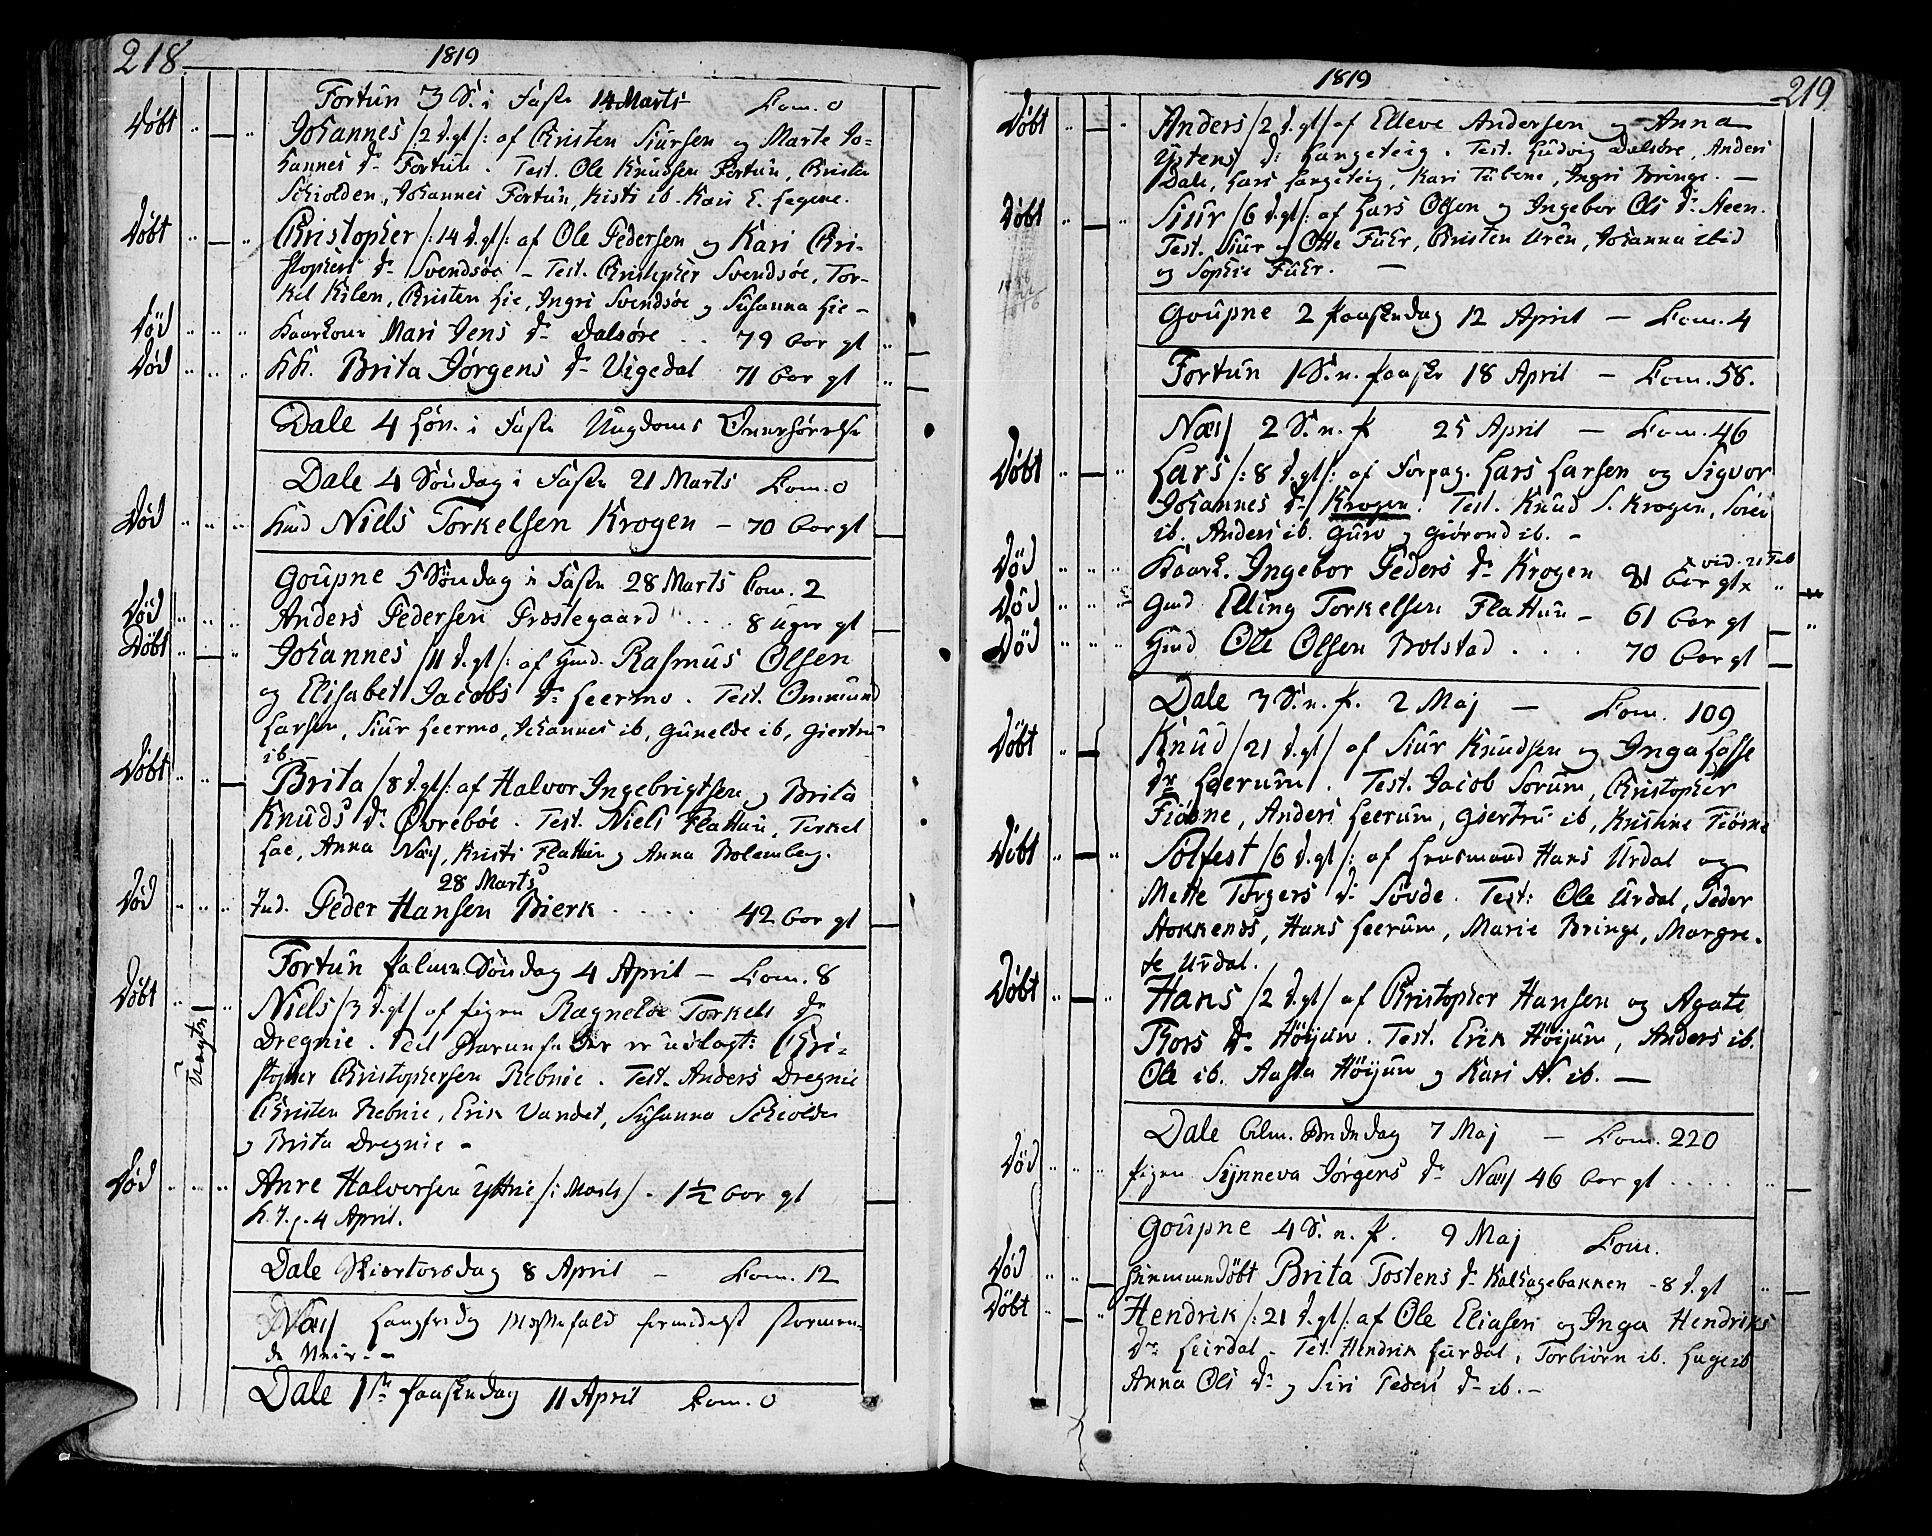 218.
1819
Fortun 3 S. i Faste 14 Marts Com. 0
Døbt Johannes /: 2 d. gl /: af Christen Siursen og Marte Jo-
hannes Dr Fortun. Test. Ole Knudsen Fortun, Christen
Schiolden, Johannes Fortun, Kisti ib. Kari E. Hegene.
Døbt Christopher /: 14 d. gl /: af Ole Pedersen og Kari Chri-
stophers Dr Svendsøe - Test. Christopher Svendsøe, Tor-
kel Kilen, Christen Lie, Ingri Svendsøe og Susanna Lie -
Død Kaarkone Mari Jens Dr Dalsøre . . 79 Aar gl
Død KK. Brita Jørgens Dr Vigedal 71 Aar gl
Dale 4 Løv. i Faste Ungdoms Overhørelse
Dale 4 Søndag i Faste 21 Marts Com. 0
Død Huusmd Niels Torkelsen Krogen - 70 Aar gl
Goupne 5 Søndag i Faste 28 Marts Com. 2
Død Anders Pedersen Prestegaard . . . . 8 Uger gl
Døbt Johannes /: 11 d. gl /: af Gmd. Rasmus Olsen
og Elisabet Jacobs Dr Leermo. Test. Ommund
Larsen, Siur Leermo, Johannes ib, Gunelde ib, Giertru
ib.
Døbt Brita /: 8 d. gl /: af Halvor Ingebrigtsen og Brita
Knuds Dr Øvrebøe. Test. Niels Flattun, Torkel
Hae, Anna Næss, Kristi Flattun og Anna Bolemberg.
28 Marts
Død Ind. Peder Hansen Bierk . . . . . 42 Aar gl
Fortun Palme Søndag 4 April - Com. 8
Døbt Niels /: 3 d. gl / af Pigen Ragnelde Torkels Dr
Uægte
Dregnie. Til Barnefader er udlagt: Chri-
stopher Christophersen Rebnie. Test. Anders Dregnie
Christen Rebnie, Erik Vandet, Susanna Schiolden
og Brita Dregnie -
Død Anre Halversen Yttrie /: Mosls / . 1½ Aar gl
4 April.
Dale Skiertorsdag 8 April - Com. 12
Næss Langfredag Messefald formedelst stormen-
de Veir. -
Dale 1ste Paaskedag 11 April Com. 0
1819
219
Døbt Anders / 2 d. gl / af Elleve Andersen og Anna
Ystens Dr Hangeteig. Test. Ludvig Dalsøre, Anders
Dale, Lars Hangeteig, Kari Tubene, Ingri Bringe. -
Døbt Siur / 6 d. gl /: af Lars Olsen og Ingebor Ols Dr Steen.
Test. Siur og Otte Fuhr, Christen Uren, Johanna ibid
og Sophie Fuhr. -
Goupne 2 Paaskedag 12 April - Com. 4
Fortun 1 S. n. Paaske 18 April - Com. 58.
Næss 2 S. n. P 25 April - Com. 46
Døbt Lars /: 8 d. gl /: af Forpag. Lars Larsen og Sigvor
Johannes Dr Krogen. Test. Knud S. Krogen, Søren
ib. Anders ib. Guro og Giørond ib. -
Død Kaark. Ingebor Peders Dr Krogen 81 Aar gl x x vid. 21 Feb
Død Gmd Elling Torkelsen Flattun - 61 Aar gl
Død Huusmd Ole Olsen Bolstad . . . . 70 Aar gl
Dale 3 S. n. P. 2 Maj - Com. 109
Døbt Knud / 21 d. gl / af Siur Knudsen og Inga Lasse
Dr Leerum. Test. Jacob Sorum, Christopher
Fiøsne, Anders Leerum, Giertru ib, Kristine Fiøsne
Døbt Sølfest / 6 d. gl /: af Huusmand Hans Urdal og
Mette Torgers Dr Søvde. Test: Ole Urdal, Peder
Stokkenos, Hans Leerum, Marie Bringe, Margre-
te Urdal.
Døbt Hans / 2 d. gl / af Christopher Hansen og Agate
Thors Dr Høijum. Test. Erik Høijum, Anders ib.
Ole ib. Aasta Høijum og Kari N. ib. -
Dale Alm. Bededag 7 Maj - Com. 220
Død Pigen Synneva Jørgens Dr Næss 46 Aar gl . . . .
Goupne 4 S. n. P. 9 Maj Com.
Død Hiemmedøbt Brita Tostens Dr Kalhagebakken - 8 d. gl
Døbt Hendrik /: 21 d. gl /: af Ole Eliasen og Inga Hendriks
Dr Leirdal - Test. Hendrik Leirdal, Torbiørn ib. Hage ib
Anna Ols Dr og Siri Peders Dr ib. -